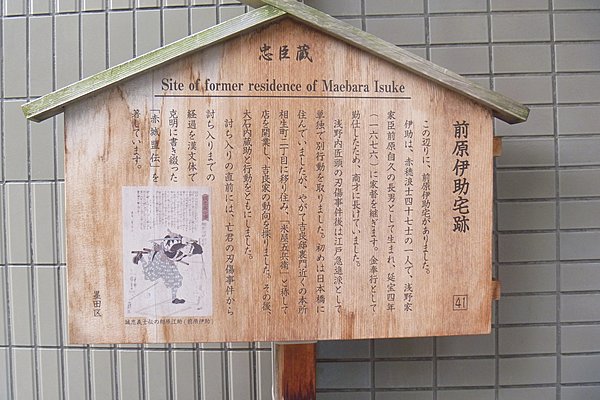 忠臣蔵
Site of former residence of Maebara Isuke
前原伊助宅跡
この辺りに、前原伊助宅がありました。
伊助は、赤穂浪士四十七士の一人で、浅野家
家臣前原自久の長男として生まれ、延宝四年
（一六七六）に家督を継ぎます。金奉行として
勤仕したため、商才に長けていました。
浅野内匠頭の刃傷事件後は江戸急進派として
単独で別行動を取りました。初めは日本橋に
住んでいましたが、やがて吉良邸裏門近くの本所
相生町二丁目に移り住み、「米屋五兵衛」と称して
店を開業し、吉良家の動向を探りました。その後、
大石内蔵助と行動をともにしました。
討ち入りの直前には、亡君の刃傷事件から
討ち入りまでの
経過を漢文体で
克明に書き綴った
「赤城盟伝」を
著しています。
41
誠忠義士伝の相原江助（前原伊助）
墨田区